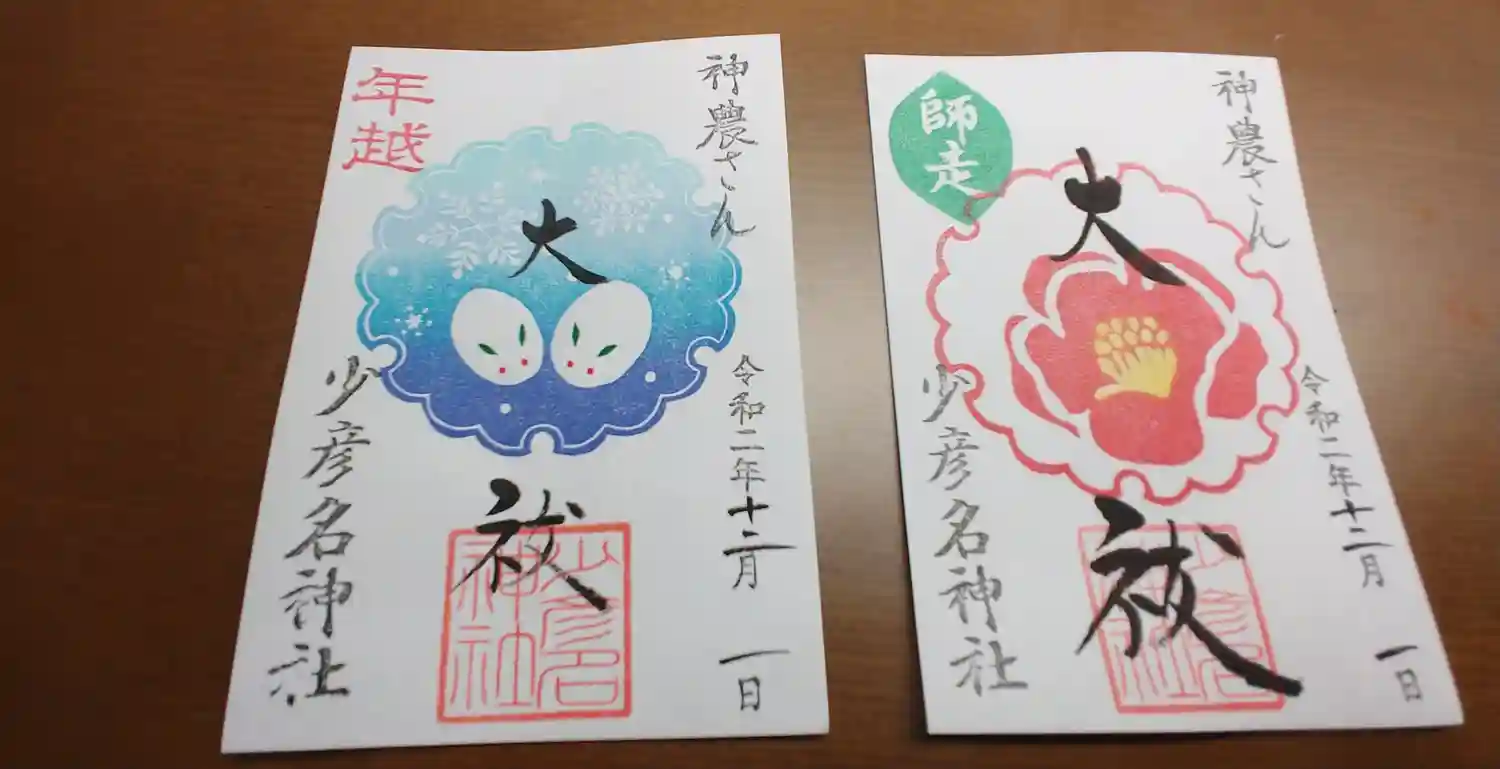 神農さん
令和二年十二月 一日
大祓
年越
少彦名神社
少彦名神社
神農さん
令和二年十二月 一日
大祓
師走
少彦名神社
少彦名神社